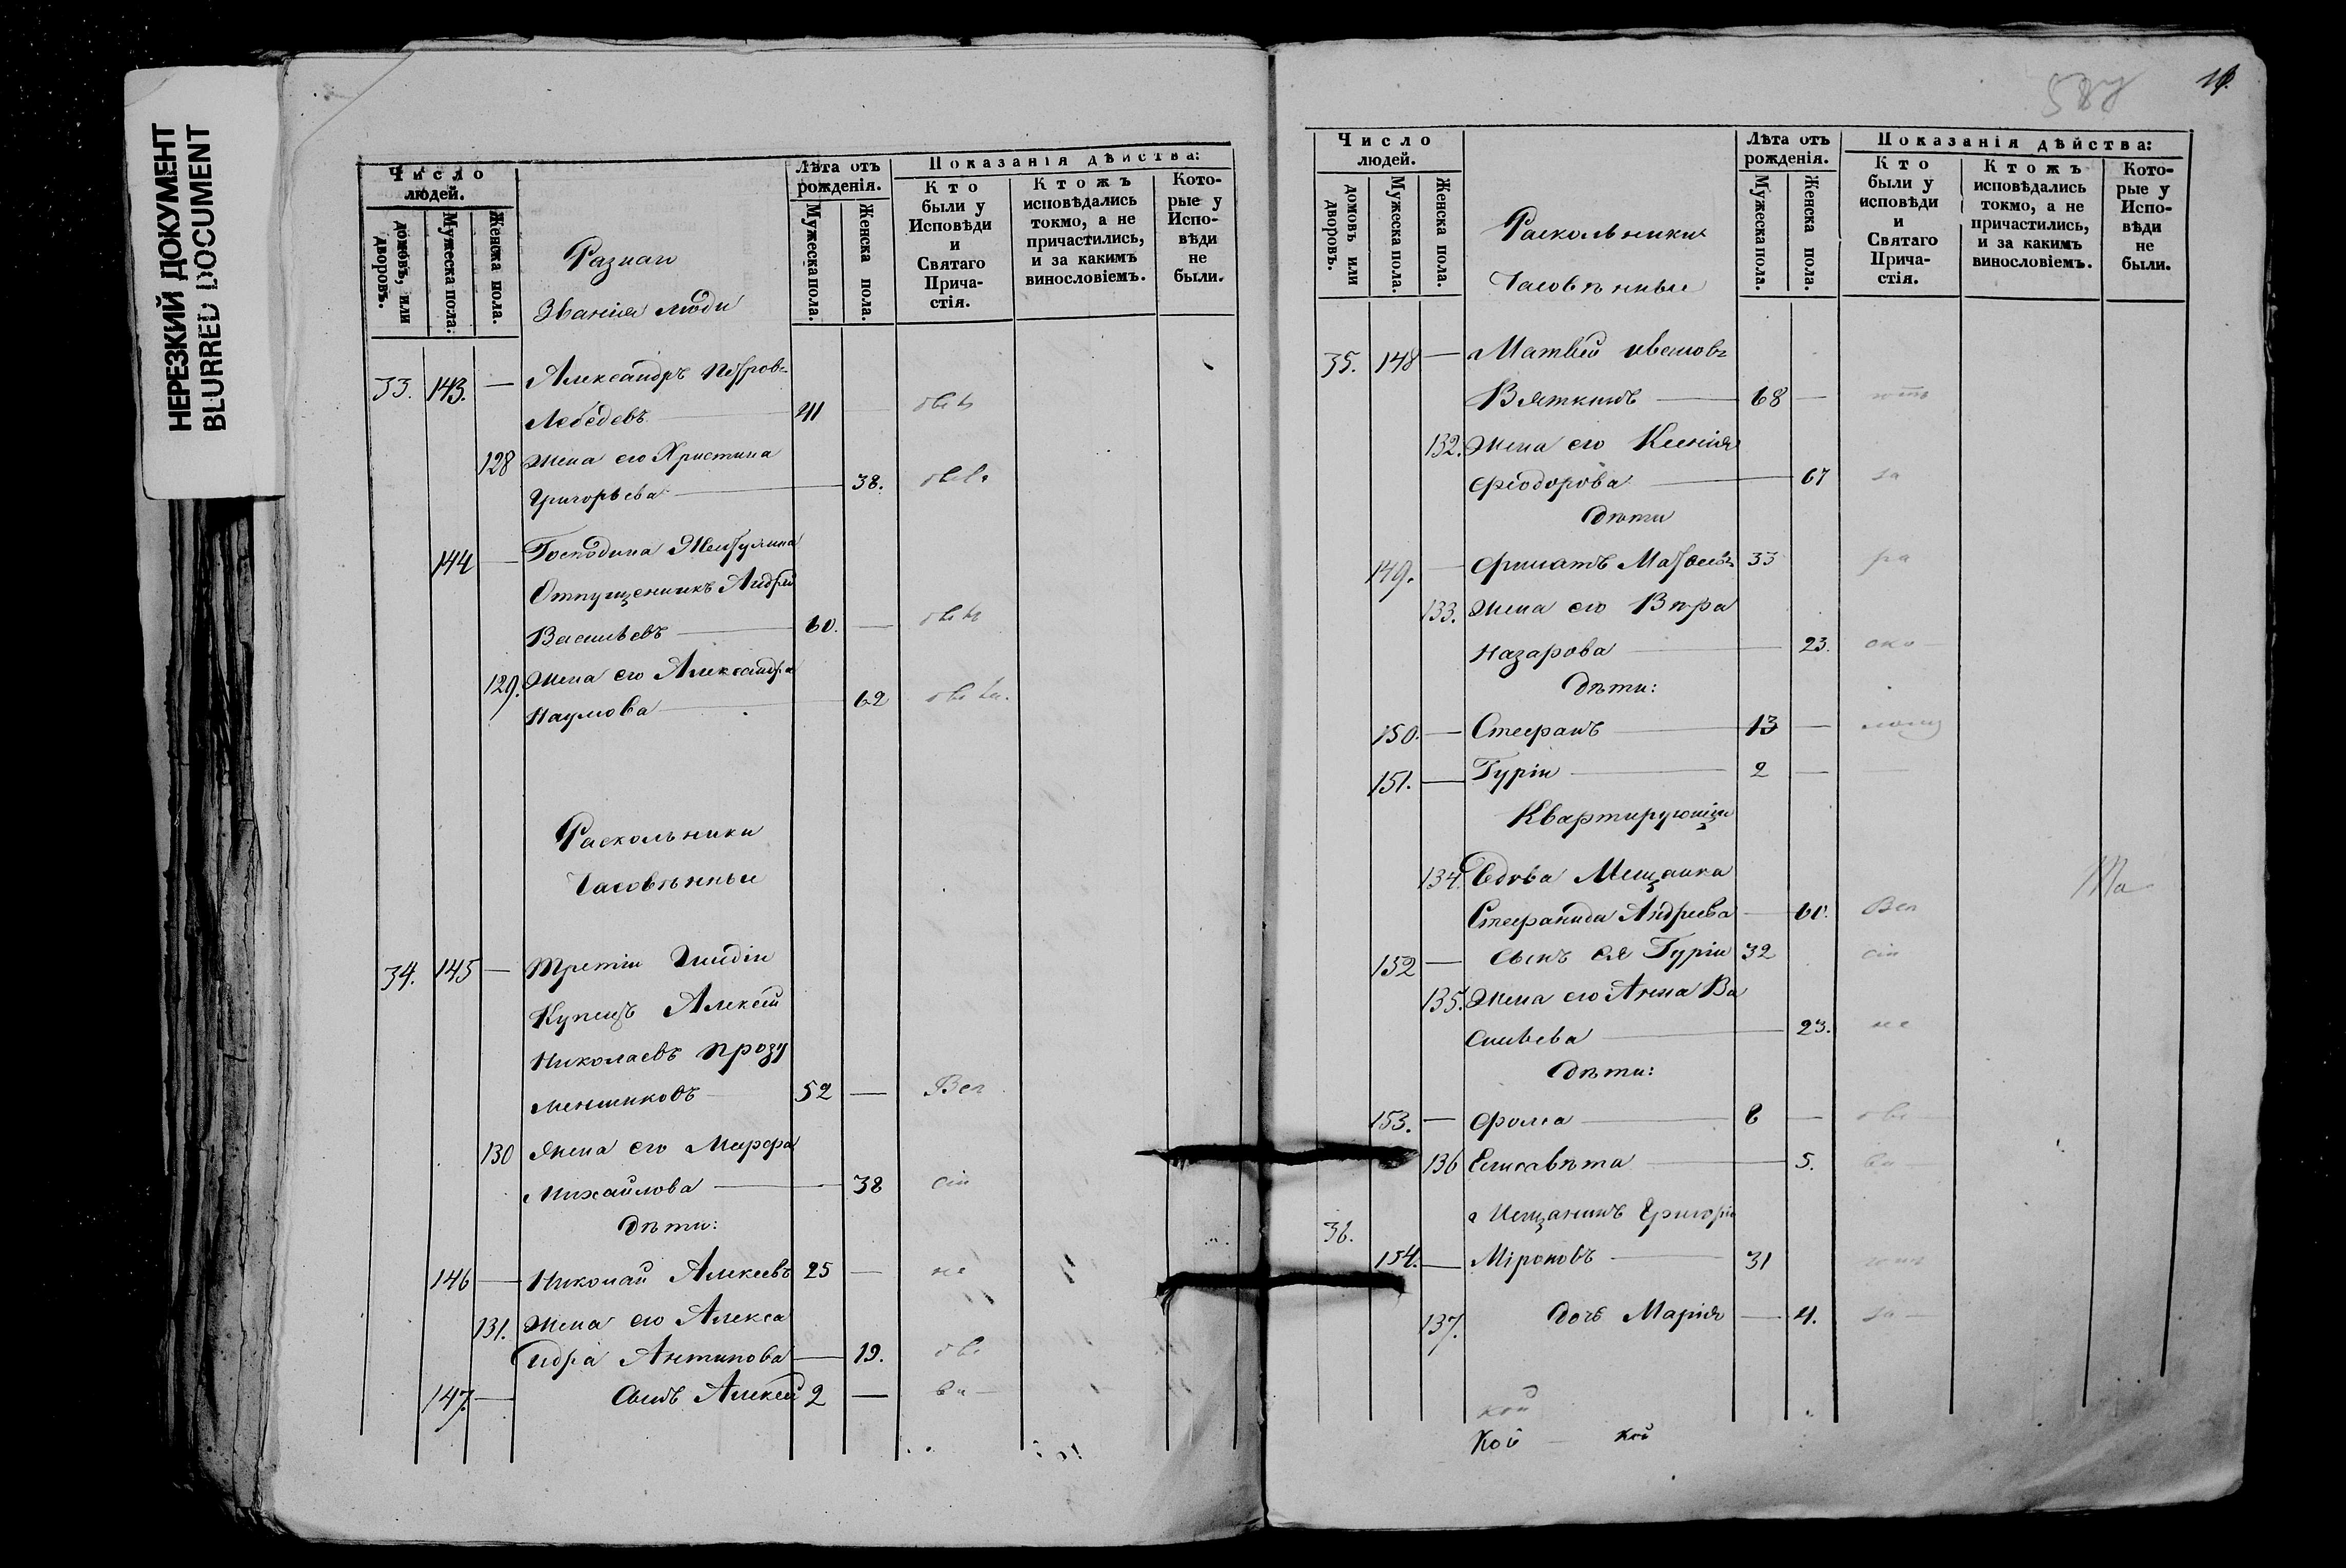 НЕРЕЗКИЙ ДОКУМЕНТ
BLURRED DOCUMENT
Число людей.
домовъ, или дворовъ.
Мужеска пола.
Женска пола.
Лѣта отъ рожденія.
Мужеска пола.
Женска пола.
Показанія дѣйства:
Кто были у Исповѣди и Святаго Причастія.
Ктожъ исповѣдались токмо, а не причастились, и за какимъ винословіемъ.
Которые у Исповѣди не были.
Разнаго
Званія люди
33. 143. — Александръ Петровъ
Лебедевъ 41
128 Жена его Христина
Григорьева 38.
144 — Господина
Отпущенникъ Андрей
Васильевъ 60. —
129. Жена его Александра
Наумова 62
Раскольники
Часовенные
34. 145 — Третій Гильдіи
Купецъ Алексей
Николаевъ Прозу
меншиковъ 52 — Всл
130 Жена его Марфа
Михайлова 38 сіи
Дѣти:
146 — Николай Алексеевъ 25 — не
131. Жена его Алекса
ндра Антипова — 19. обв
147. — Сынъ Алексей 2 — ви
16.
Число людей.
домовъ или дворовъ.
Мужеска пола.
Женска пола.
Раскольники
Часовѣнные
Лѣта отъ рожденія.
Мужеска пола.
Женска пола.
Показанія дѣйства:
Кто были у исповѣди и Святаго Причастія.
Ктожъ исповѣдались токмо, а не причастились, и за какимъ винословіемъ.
Которые у Исповѣди не были.
35. 148 — Матвѣй Ивановъ
Вяткинъ 68 —
132. Жена его Ксенія
Феодорова 67 за
Дѣти
149. — Филатъ Матвеевъ 33 ра
133. Жена его Вѣра
Назарова 23. ско
Дѣти:
150. — Стефанъ 13 —
151. — Гурій 2 —
Квартирующіи
134. Вдова Мещанка
Стефанида Андреева — 60. Всл
152 — Сынъ ея Гурій 32 сіи
135. Жена его Анна Ва
сильева 23. не
Дѣти:
153. — Фома 8 — обв
136 Елисавѣта 5. ви
36. Мещанинъ Григорій
154. — Міроновъ 31
137. дочь Марія — 4. за
кой
Кой — кой